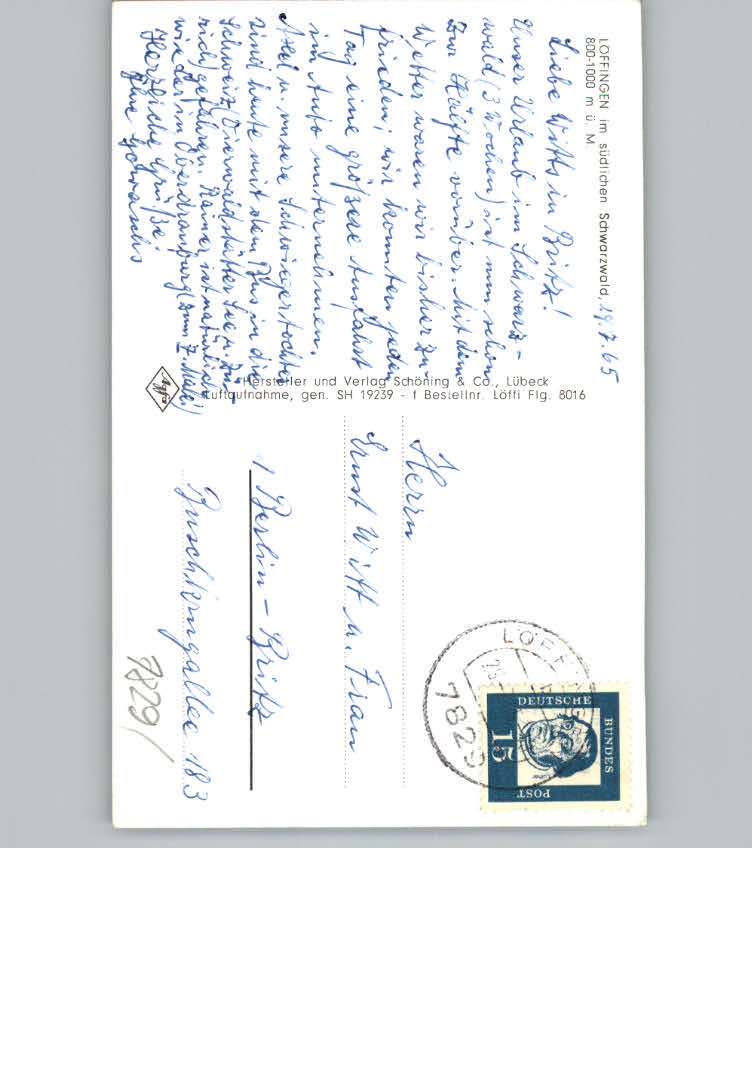 LÖFFINGEN im südlichen Schwarzwald, 29.7.65
800-1000 m ü. M
Liebe Witts in Britz!
Unser Urlaub im Schwarz-
wald (3 Wochen) ist nun schon
zur Hälfte vorüber. Mit dem
Wetter waren wir bisher zu-
frieden; wir konnten jeden
Tag eine größere Ausfahrt
im Auto unternehmen.
Axel u. unsere Schwiegertochter
sind heute mit dem Bus in die
Schweiz (Vierwaldstätter See n. Zü-
rich) gefahren. Rainer ist natürlich
wieder in Oberdrauburg (zum 7. Mal!)
Herzliche Grüße!
Ihre
Agfa
Hersteller und Verlag Schöning & Co., Lübeck
Luftaufnahme, gen. SH 19239 - f Bestellnr. Löffi Flg. 8016
Herrn
Ernst Witt u. Frau
1 Berlin-Britz
Buschkrugallee 183
7829/
LÖFFINGEN
7829
DEUTSCHE
BUNDES
POST
15
Luther